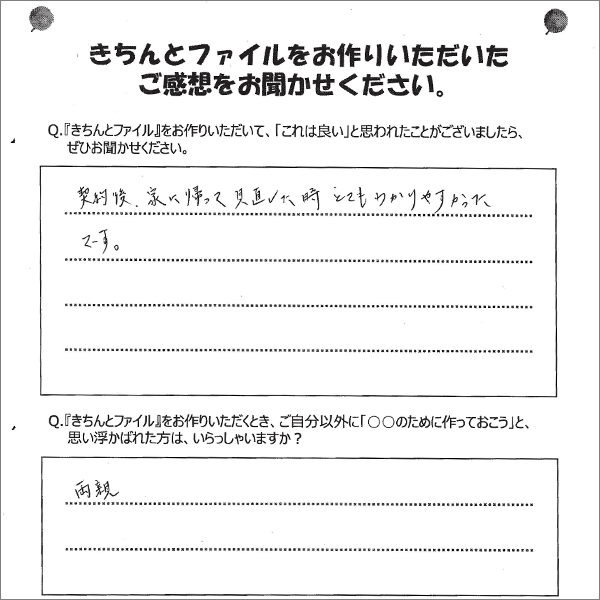 きちんとファイルをお作りいただいた
ご感想をお聞かせください。
Q.『きちんとファイル』をお作りいただいて、「これは良い」と思われたことがございましたら、
ぜひお聞かせください。
契約後、家に帰って見直した時とてもわかりやすかった
です。
Q.『きちんとファイル』をお作りいただくとき、ご自分以外に「○○のために作っておこう」と、
思い浮かばれた方は、いらっしゃいますか？
両親